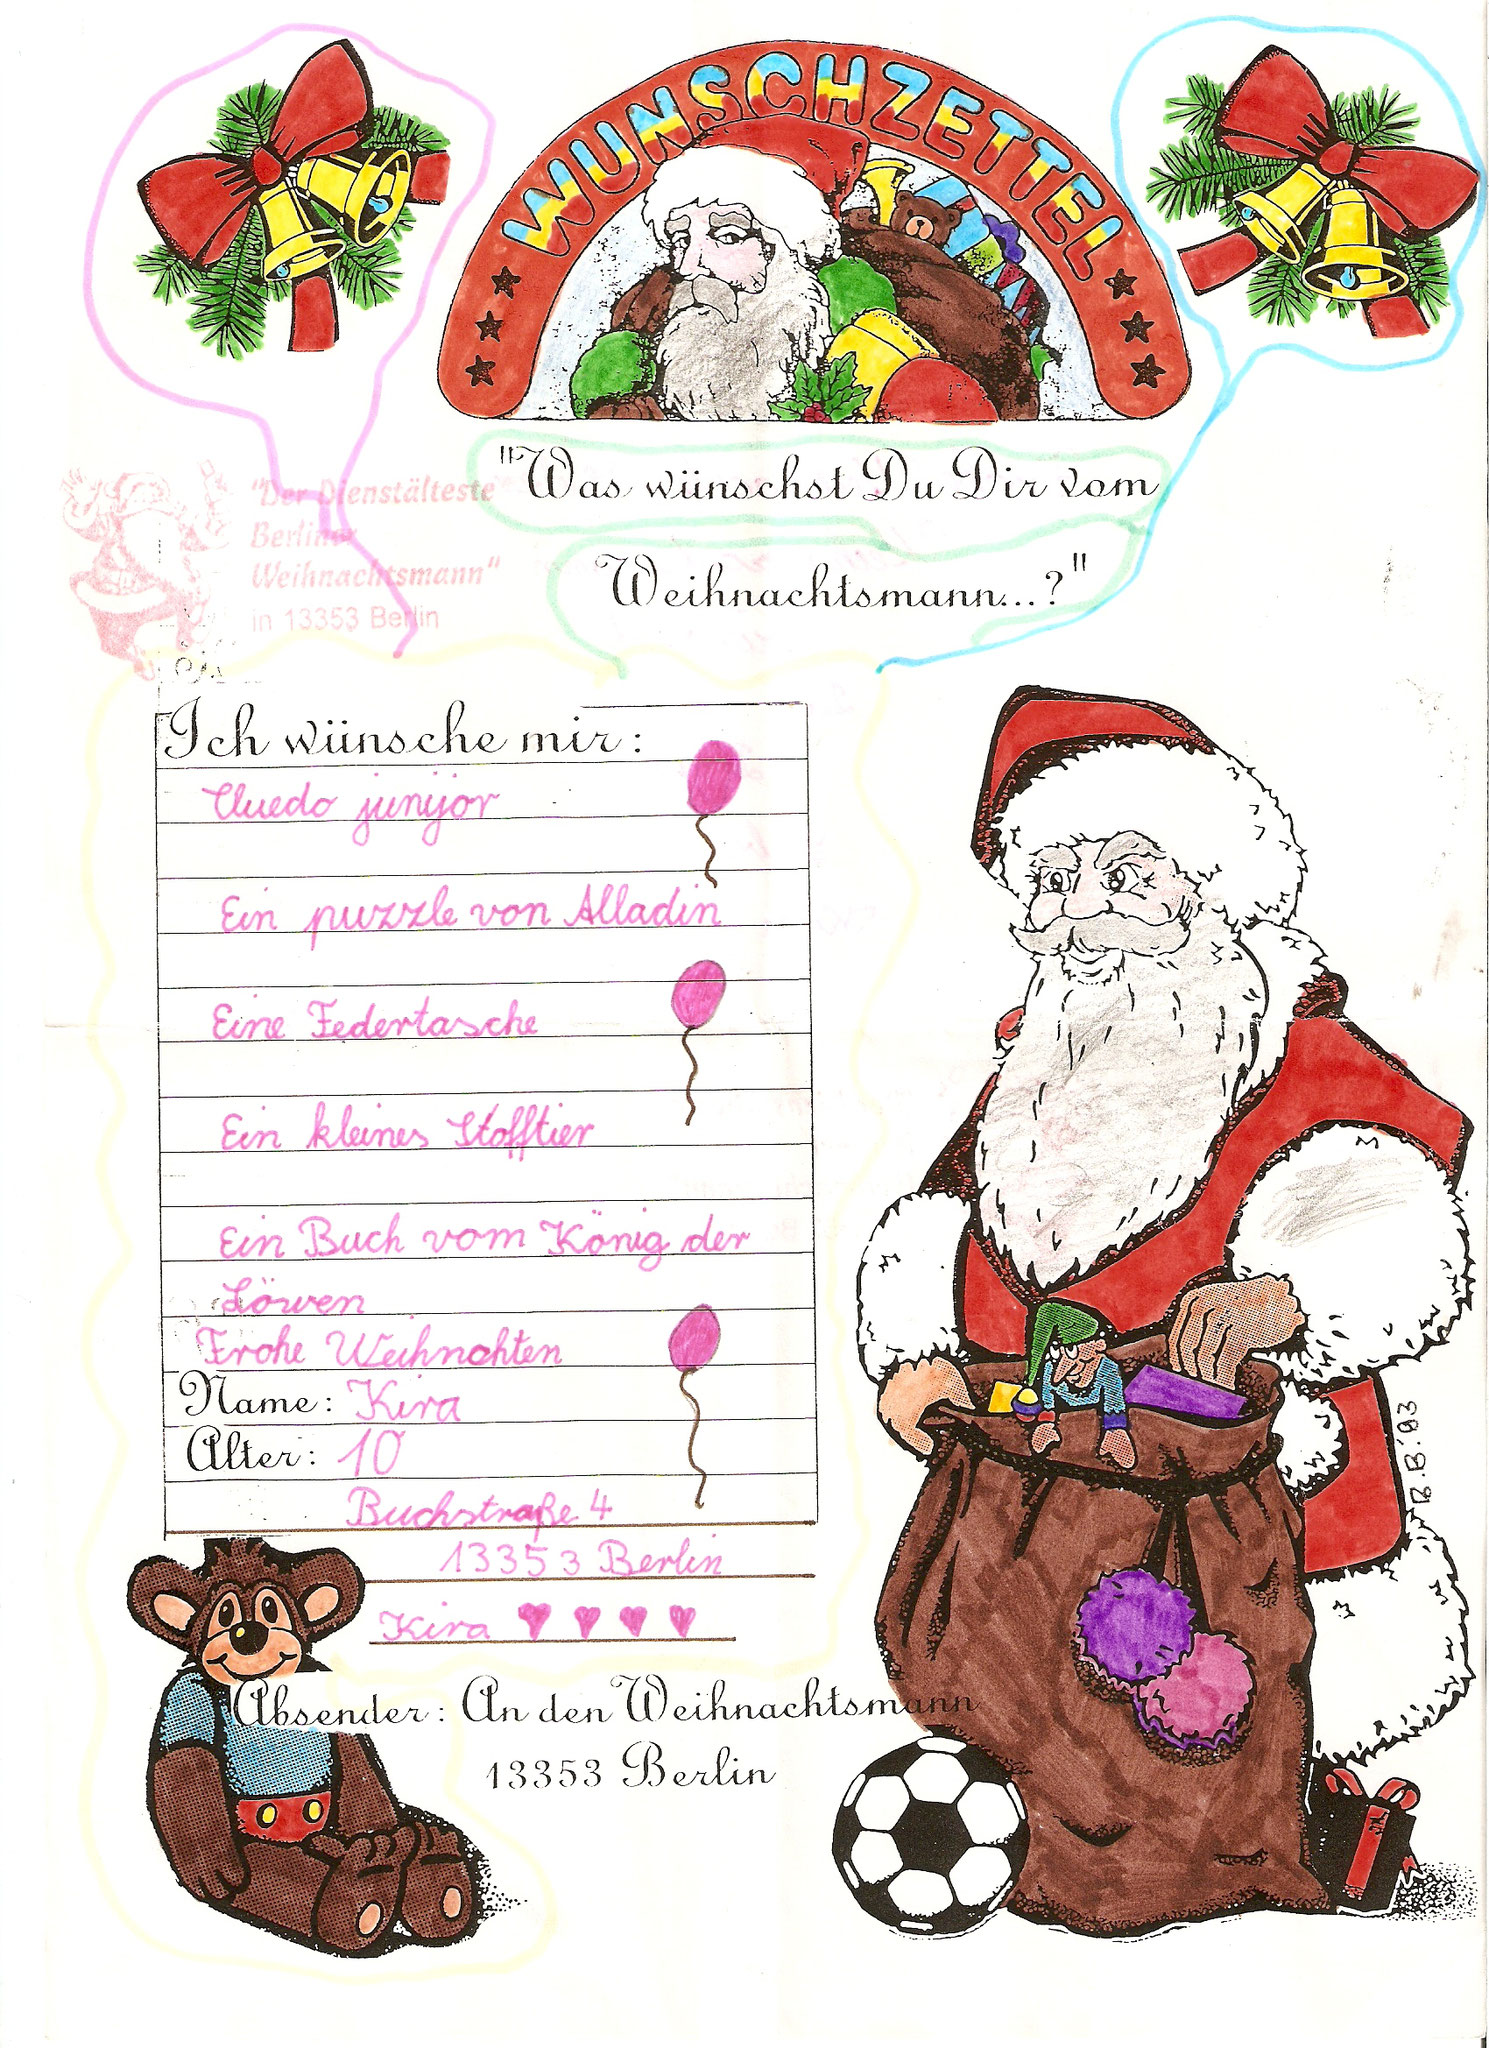 WUNSCHZETTEL
"Was wünschst Du Dir vom
Weihnachtsmann...?"
"Der Dienstälteste
Berliner
Weihnachtsmann"
in 13353 Berlin
Ich wünsche mir:
Cluedo junijor
Ein puzzle von Alladin
Eine Federtasche
Ein kleines Stofftier
Ein Buch vom König der
Löwen
Frohe Weihnachten
Name: Kira
Alter: 10
Buchstraße 4
13353 Berlin
Kira
Absender: An den Weihnachtsmann
13353 Berlin
B.B.'93